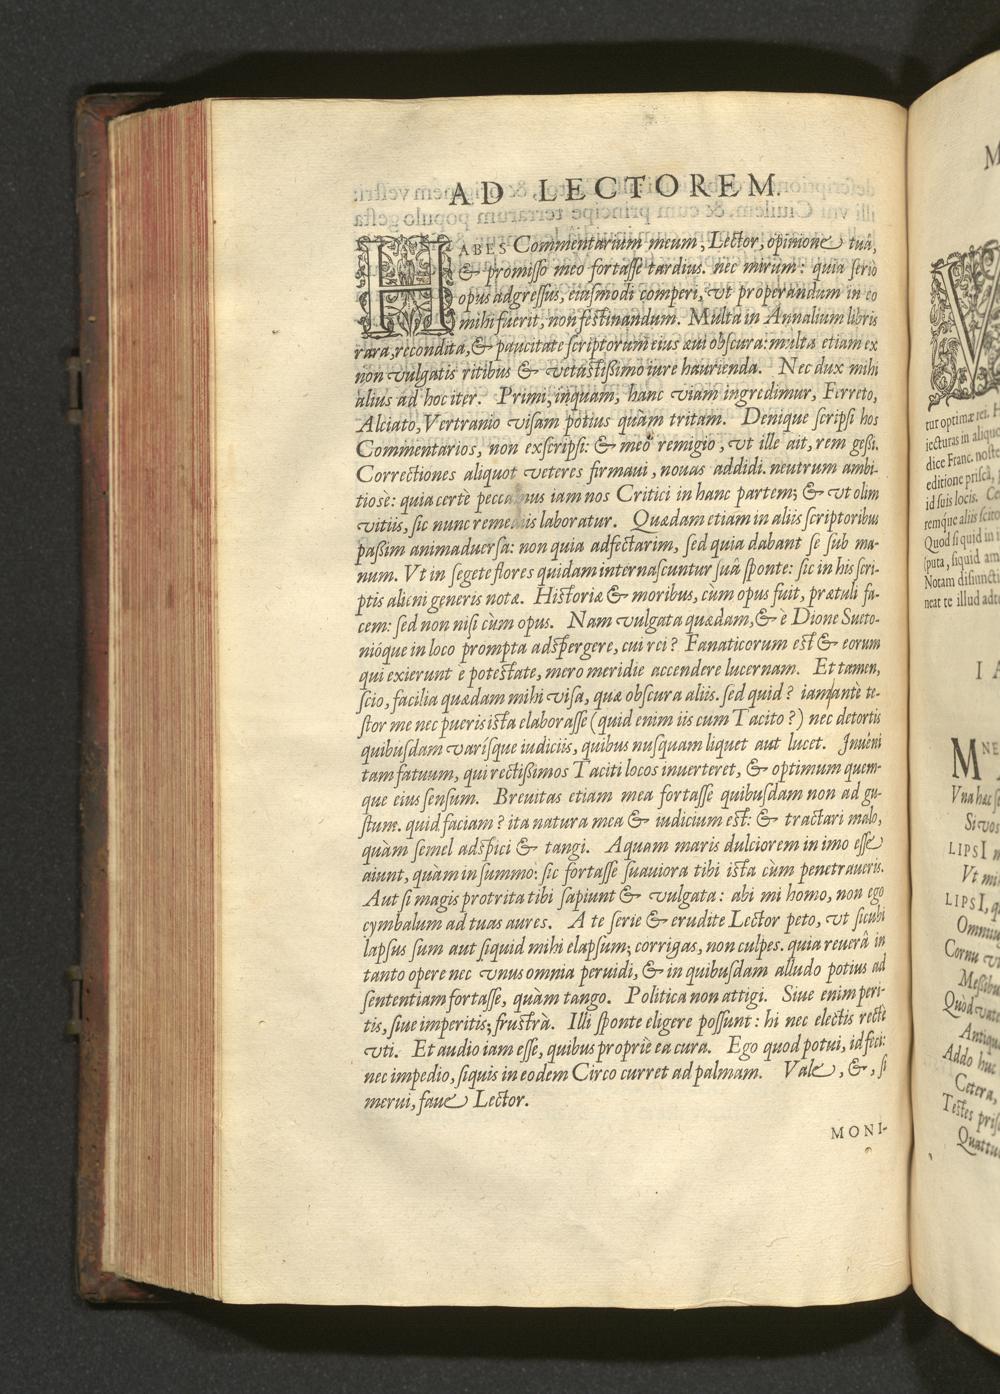 AD LECTOREM.
HABES Commentarium meum, Lector, opinione tuâ,
& promisso meo fortasse tardius. nec mirum: quia serio
opus adgressus, eiusmodi comperi, vt properandum in eo
mihi fuerit, non festinandum. Multa in Annalium libris
rara, recondita, & paucitate scriptorum eius æui obscura: multa etiam ex
non vulgatis ritibus & vetustissimo iure haurienda. Nec dux mihi
alius ad hoc iter. Primi, inquam, hanc viam ingredimur, Ferreto,
Alciato, Vertranio visam potius quàm tritam. Denique scripsi hos
Commentarios, non exscripsi: & meo remigio, vt ille ait, rem gessi.
Correctiones aliquot veteres firmaui, nouas addidi. neutrum ambi-
tiosè: quia certè peccamus iam nos Critici in hanc partem; & vt olim
vitiis, sic nunc remediis laboratur. Quædam etiam in aliis scriptoribus
passim animaduersa: non quia adfectarim, sed quia dabant se sub ma-
num. Vt in segete flores quidam internascuntur suâ sponte: sic in his scri-
ptis alieni generis notæ. Historiæ & moribus, cùm opus fuit, prætuli fa-
cem: sed non nisi cùm opus. Nam vulgata quædam, & è Dione Sueto-
nióque in loco prompta adspergere, cui rei? Fanaticorum est & eorum
qui exierunt è potestate, mero meridie accendere lucernam. Et tamen,
scio, facilia quædam mihi visa, quæ obscura aliis. sed quid? iam antè te-
stor me nec pueris ista elaborasse (quid enim iis cum Tacito?) nec detortis
quibusdam varisque iudiciis, quibus nusquam liquet aut lucet. Inuêni
tam fatuum, qui rectissimos Taciti locos inuerteret, & optimum quem-
que eius sensum. Breuitas etiam mea fortasse quibusdam non ad gu-
stum. quid faciam? ita natura mea & iudicium est: & tractari malo,
quàm semel adspici & tangi. Aquam maris dulciorem in imo esse
aiunt, quam in summo: sic fortasse suauiora tibi ista cùm penetraueris.
Aut si magis protrita tibi sapiunt & vulgata: abi mi homo, non ego
cymbalum ad tuas aures. A te serie & erudite Lector peto, vt sicubi
lapsus sum aut siquid mihi elapsum; corrigas, non culpes. quia reuerâ in
tanto opere nec vnus omnia peruidi, & in quibusdam alludo potius ad
sententiam fortasse, quàm tango. Politica non attigi. Siue enim peri-
tis, siue imperitis; frustrà. Illi sponte eligere possunt: hi nec electis rectè
vti. Et audio iam esse, quibus propriè ea cura. Ego quod potui, id feci:
nec impedio, siquis in eodem Circo curret ad palmam. Vale, &, si
merui, faue Lector.
MONI-
M
V
tur optimæ rei. H
iecturas in aliquo
dice Franc. noste
editione priscâ, p
id suis locis. Ce
remque aliis scito
Quod si quid in i
(puta, siquid am
Notam disiuncti
neat te illud adte
I A
MNE
Vna hac s
Si vos
LIPSI m
Vt mi
LIPSI, q
Omniu
Cornu vi
Messibu
Quòd vate
Antiqu
Addo huc
Cetera,
Testes prisc
Quattu